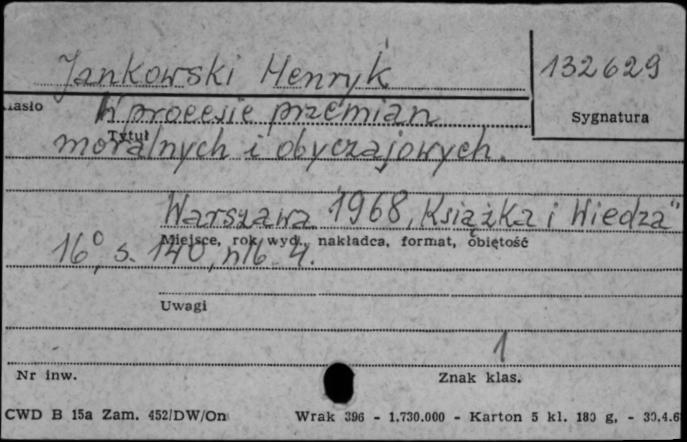 Jankowski Henryk
132629
Hasło
Sygnatura
W procesie przemian
Tytuł
moralnych i obyczajowych.
Warszawa 1968, „Książka i Wiedza"
Miejsce, rok wyd., nakładca, format, objętość
16°, s. 140, nlb 4.
Uwagi
1
Nr inw.
Znak klas.
CWD B 15a Zam. 452/DW/On
Wrak 396 - 1.730.000 - Karton 5 kl. 180 g, - 30.4.6